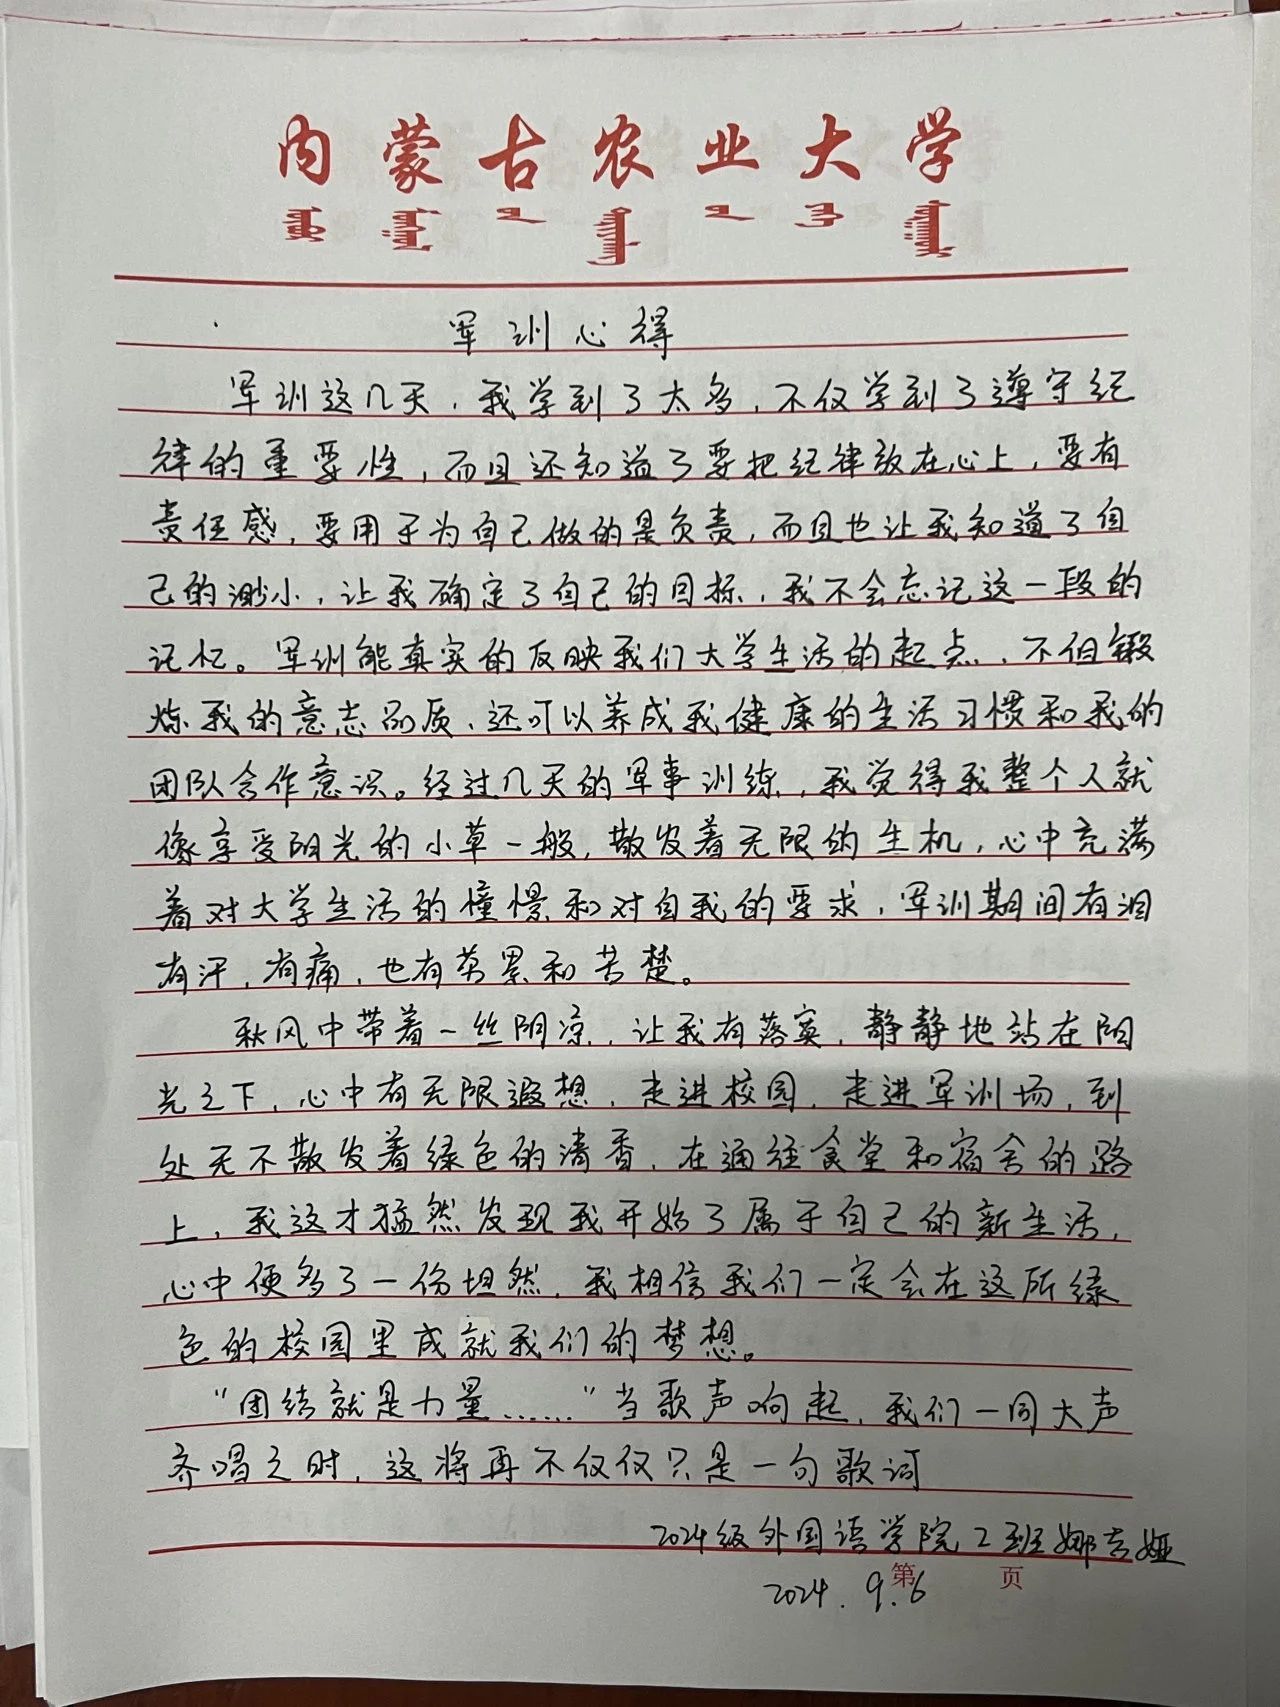 内蒙古农业大学
军训心得
军训这几天，我学到了太多，不仅学到了遵守纪
律的重要性，而且还知道了要把纪律放在心上，要有
责任感，要用于为自己做的是负责，而且也让我知道了自
己的渺小，让我确定了自己的目标，我不会忘记这一段的
记忆。军训能真实的反映我们大学生活的起点，不但锻
炼我的意志品质，还可以养成我健康的生活习惯和我的
团队合作意识。经过几天的军事训练，我觉得我整个人就
像享受阳光的小草一般，散发着无限的生机，心中充满
着对大学生活的憧憬和对自我的要求，军训期间有泪
有汗，有痛，也有劳累和苦楚。
秋风中带着一丝阴凉，让我有落寞，静静地站在阳
光之下，心中有无限遐想，走进校园，走进军训场，到
处无不散发着绿色的清香，在通往食堂和宿舍的路
上，我这才猛然发现我开始了属于自己的新生活，
心中便多了一份坦然，我相信我们一定会在这所绿
色的校园里成就我们的梦想。
“团结就是力量……”当歌声响起，我们一同大声
齐唱之时，这将再不仅仅只是一句歌词
2024级外国语学院2班娜吉娅
第 页
2024.9.6